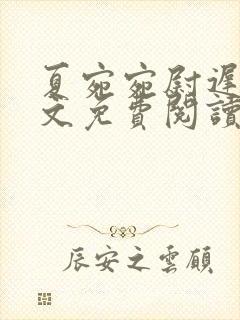 夏宛宛尉遲
文免費閱讀
辰安之雲願